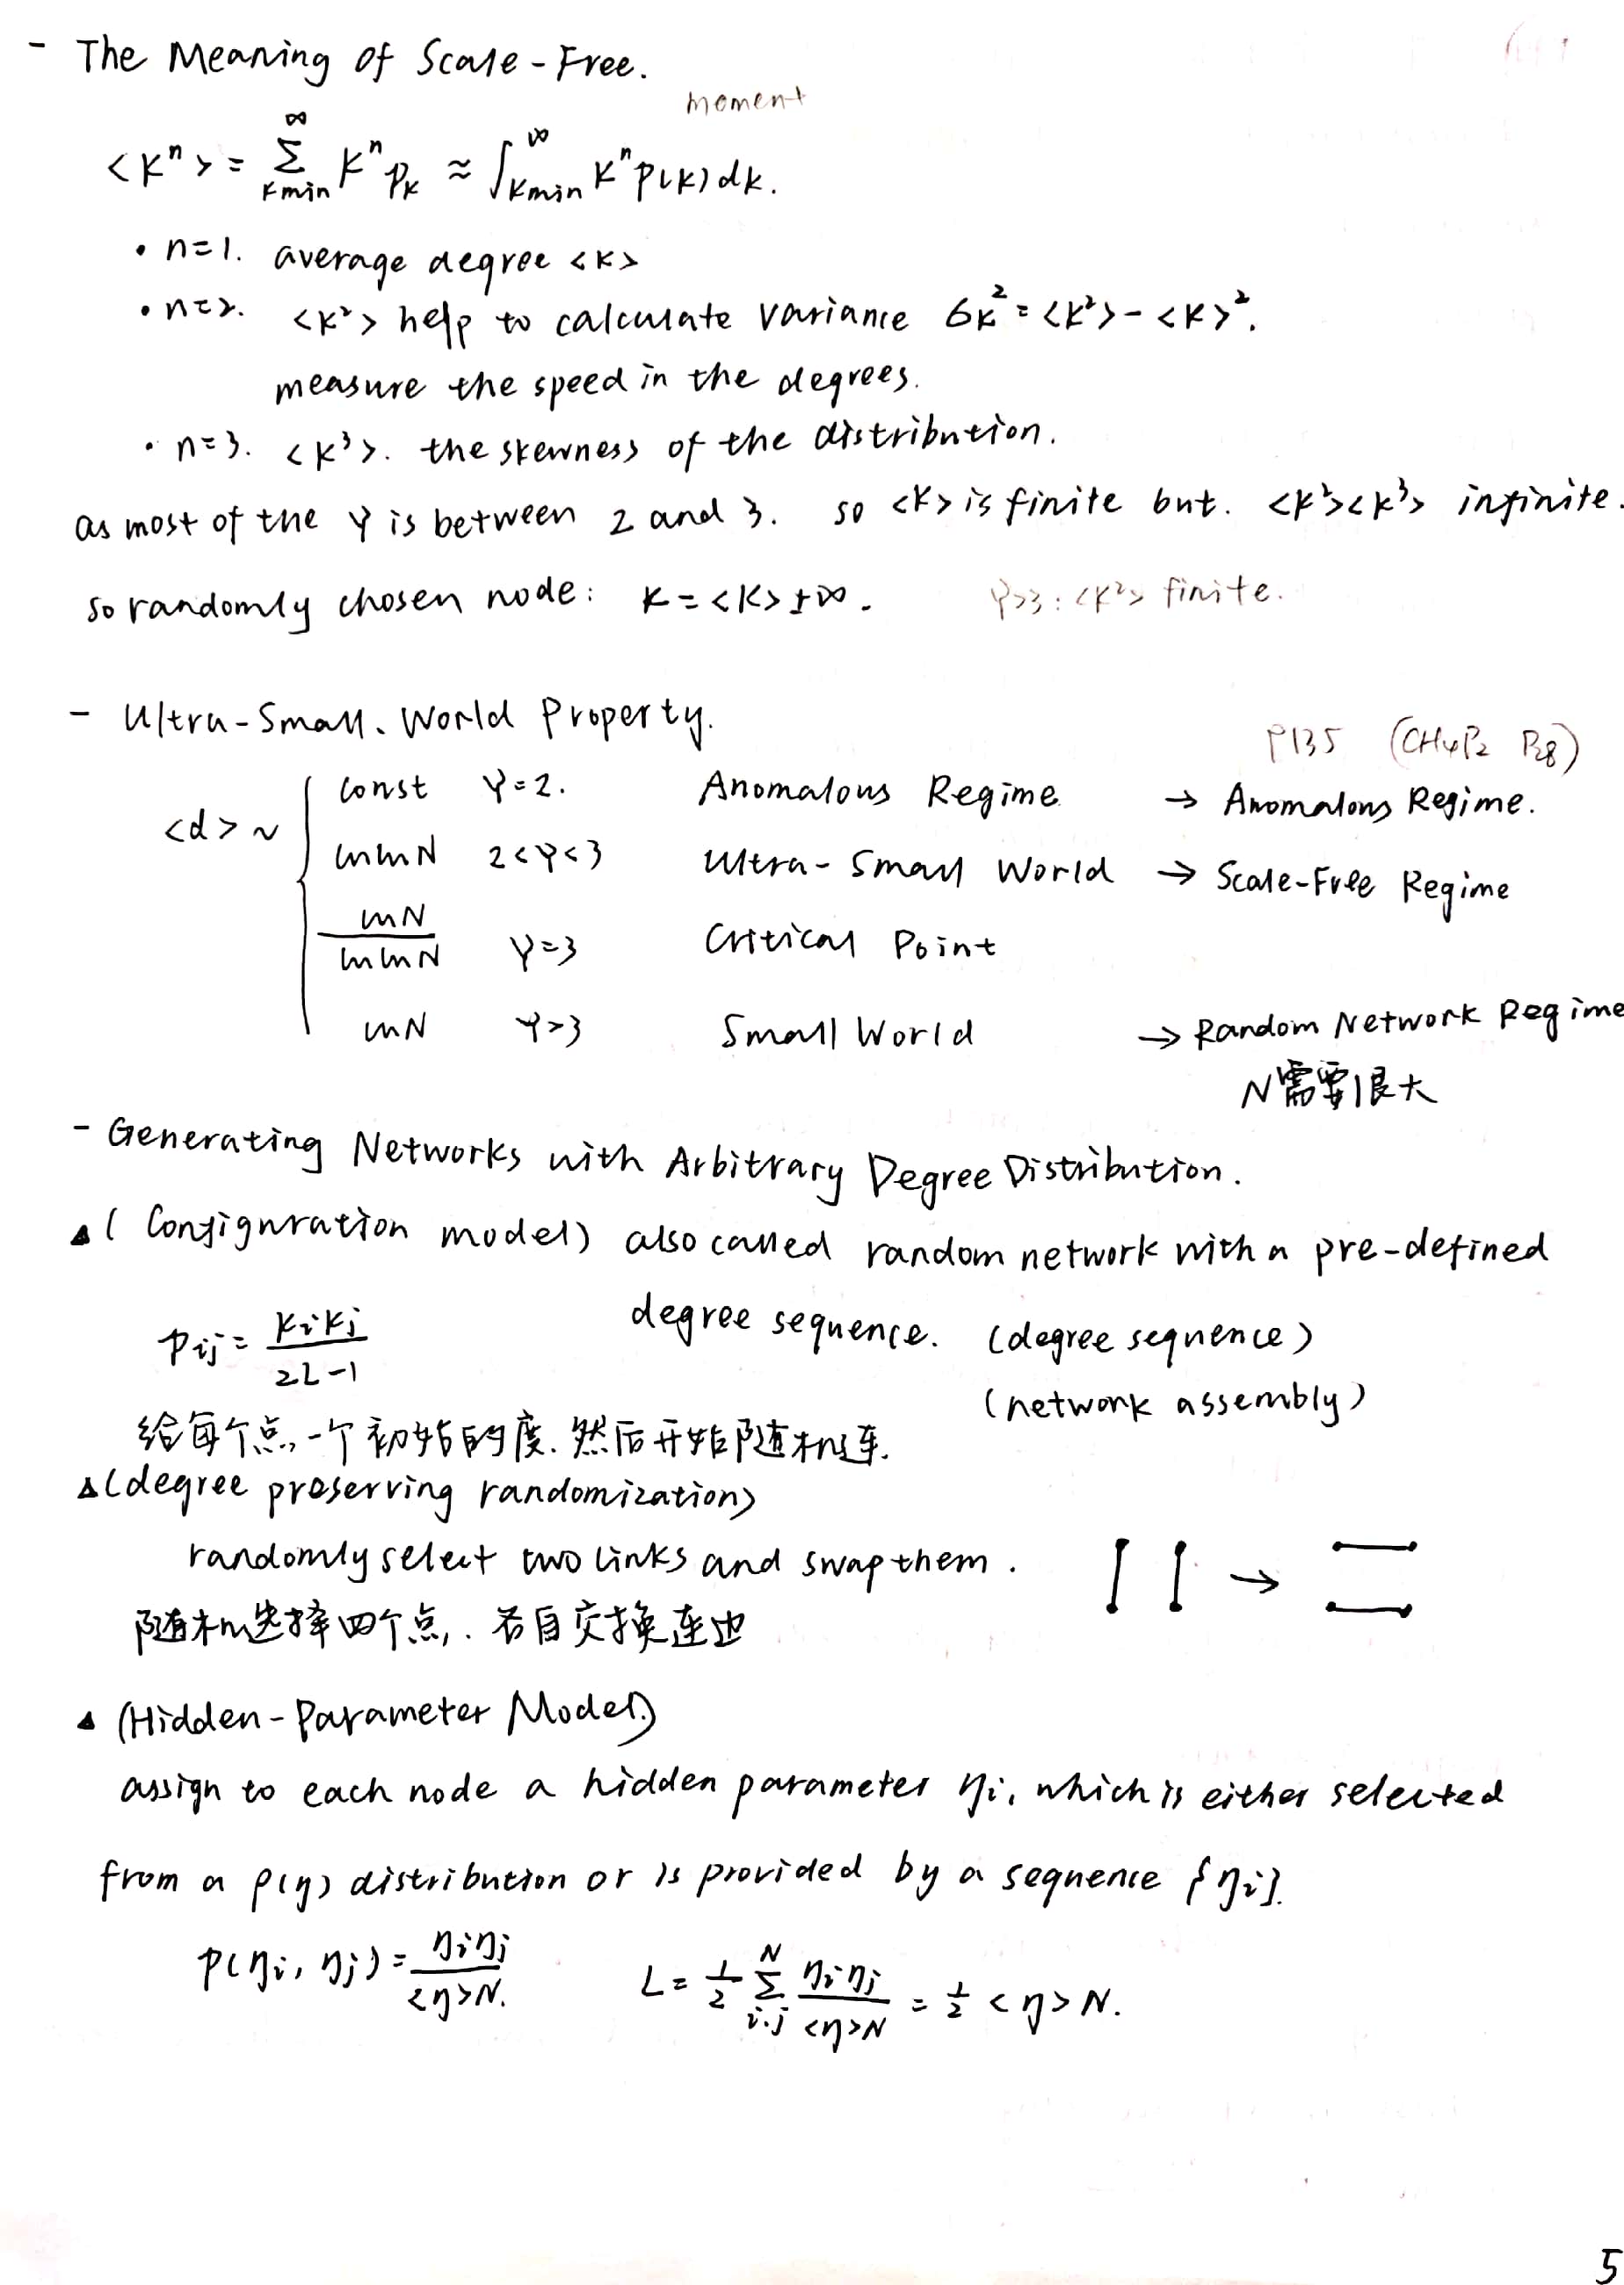 - The Meaning of Scale-Free.
moment
<k^n> = Σ_{kmin}^{∞} k^n p_k ≈ ∫_{kmin}^{∞} k^n p(k) dk.
• n=1. average degree <k>
• n=2. <k²> help to calculate variance σk² = <k²> - <k>².
measure the speed in the degrees.
• n=3. <k³>. the skewness of the distribution.
as most of the γ is between 2 and 3. so <k> is finite but. <k²><k³> infinite.
so randomly chosen node: k = <k> ± ∞. γ>3: <k²> finite.
- Ultra-Small. World Property.
P135 (CH4P2 P28)
const γ=2. Anomalous Regime. → Anomalous Regime.
<d> ~
lnlnN 2<γ<3 Ultra-Small World → Scale-Free Regime
lnN / lnlnN γ=3 Critical Point
lnN γ>3 Small World → Random Network Regime
N需要很大
- Generating Networks with Arbitrary Degree Distribution.
▲ (Configuration model) also called random network with a pre-defined
degree sequence. (degree sequence)
pij = kikj / 2L-1
(network assembly)
给每个点,一个初始的度.然后开始随机连.
▲ (degree preserving randomization)
randomly select two links and swap them. →
随机选择四个点,.各自交换连边
▲ (Hidden-Parameter Model.)
assign to each node a hidden parameter ηi, which is either selected
from a ρ(η) distribution or is provided by a sequence {ηi}.
p(ηi, ηj) = ηiηj / <η>N. L = 1/2 Σ_{i.j}^{N} ηiηj / <η>N = 1/2 <η> N.
5